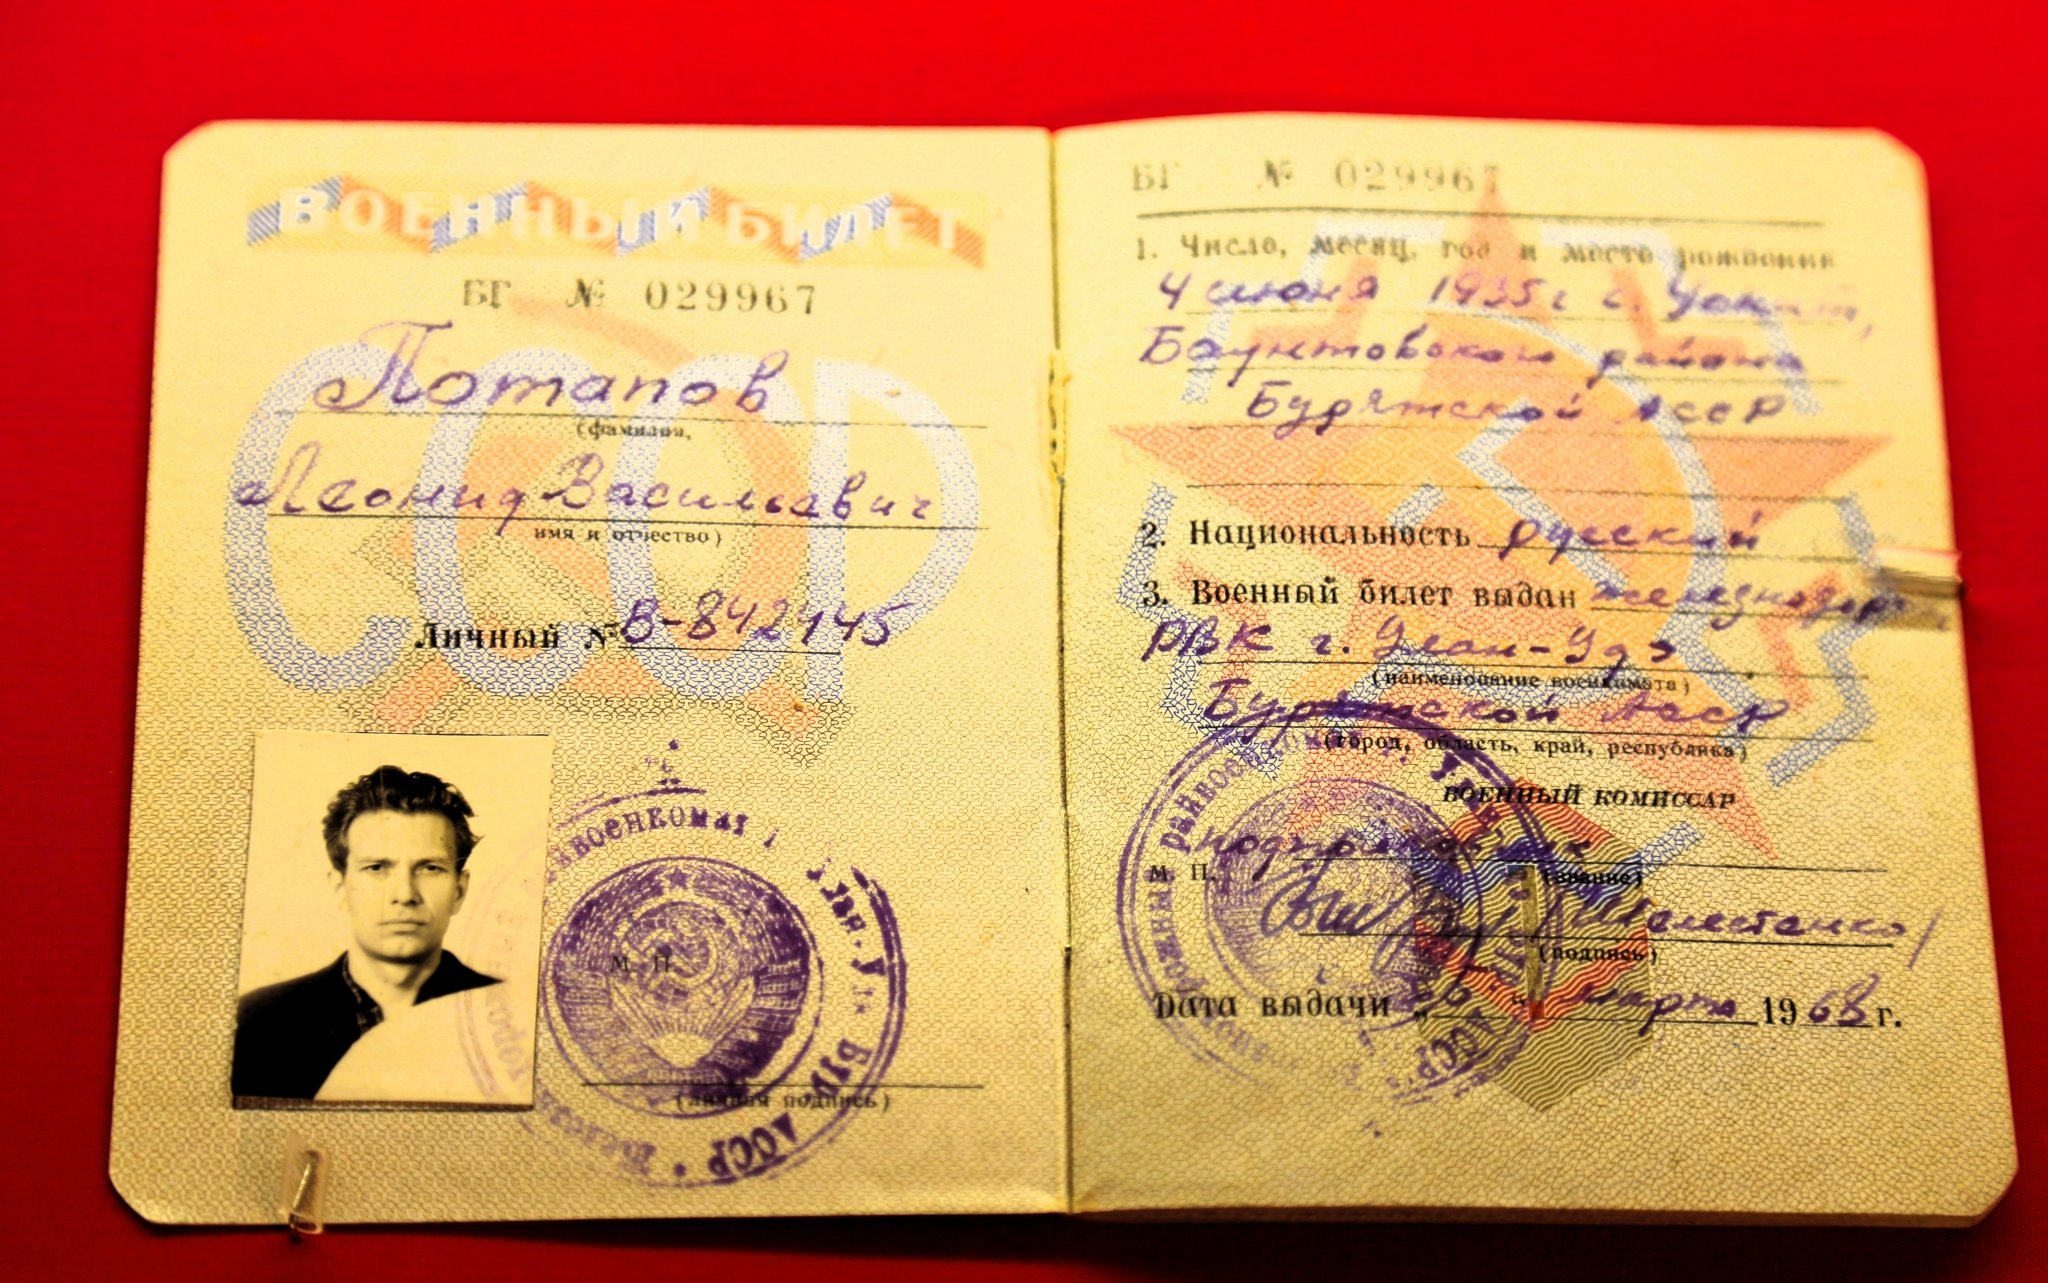 ВОЕННЫЙ БИЛЕТ
БГ № 029967
Потапов
(фамилия,
Леонид Васильевич
имя и отчество)
Личный № В-842445
М. П.
(личная подпись)
БГ № 029967
1. Число, месяц, год и место рождения
4 июня 1935 г с. Уакит,
Баунтовского района
Бурятской АССР
2. Национальность русский
3. Военный билет выдан железнодорож.
РВК г. Улан-Удэ
(наименование военкомата)
Бурятской АССР
(город, область, край, республика)
ВОЕННЫЙ КОМИССАР
подполковник
М. П. (звание)
(подпись)
Дата выдачи „ “ марта 1968 г.
СССР